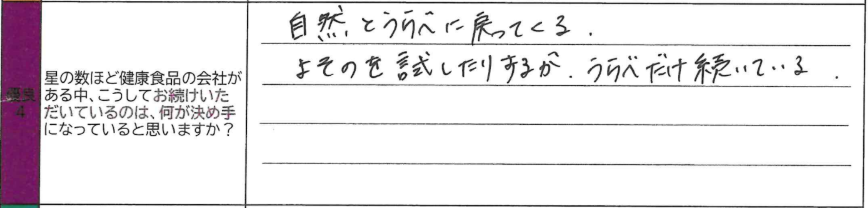 4
星の数ほど健康食品の会社が
ある中、こうしてお続けいた
だいているのは、何が決め手
になっていると思いますか？
自然とうらべに戻ってくる.
よそのを試したりするが.うらべだけ続いている.